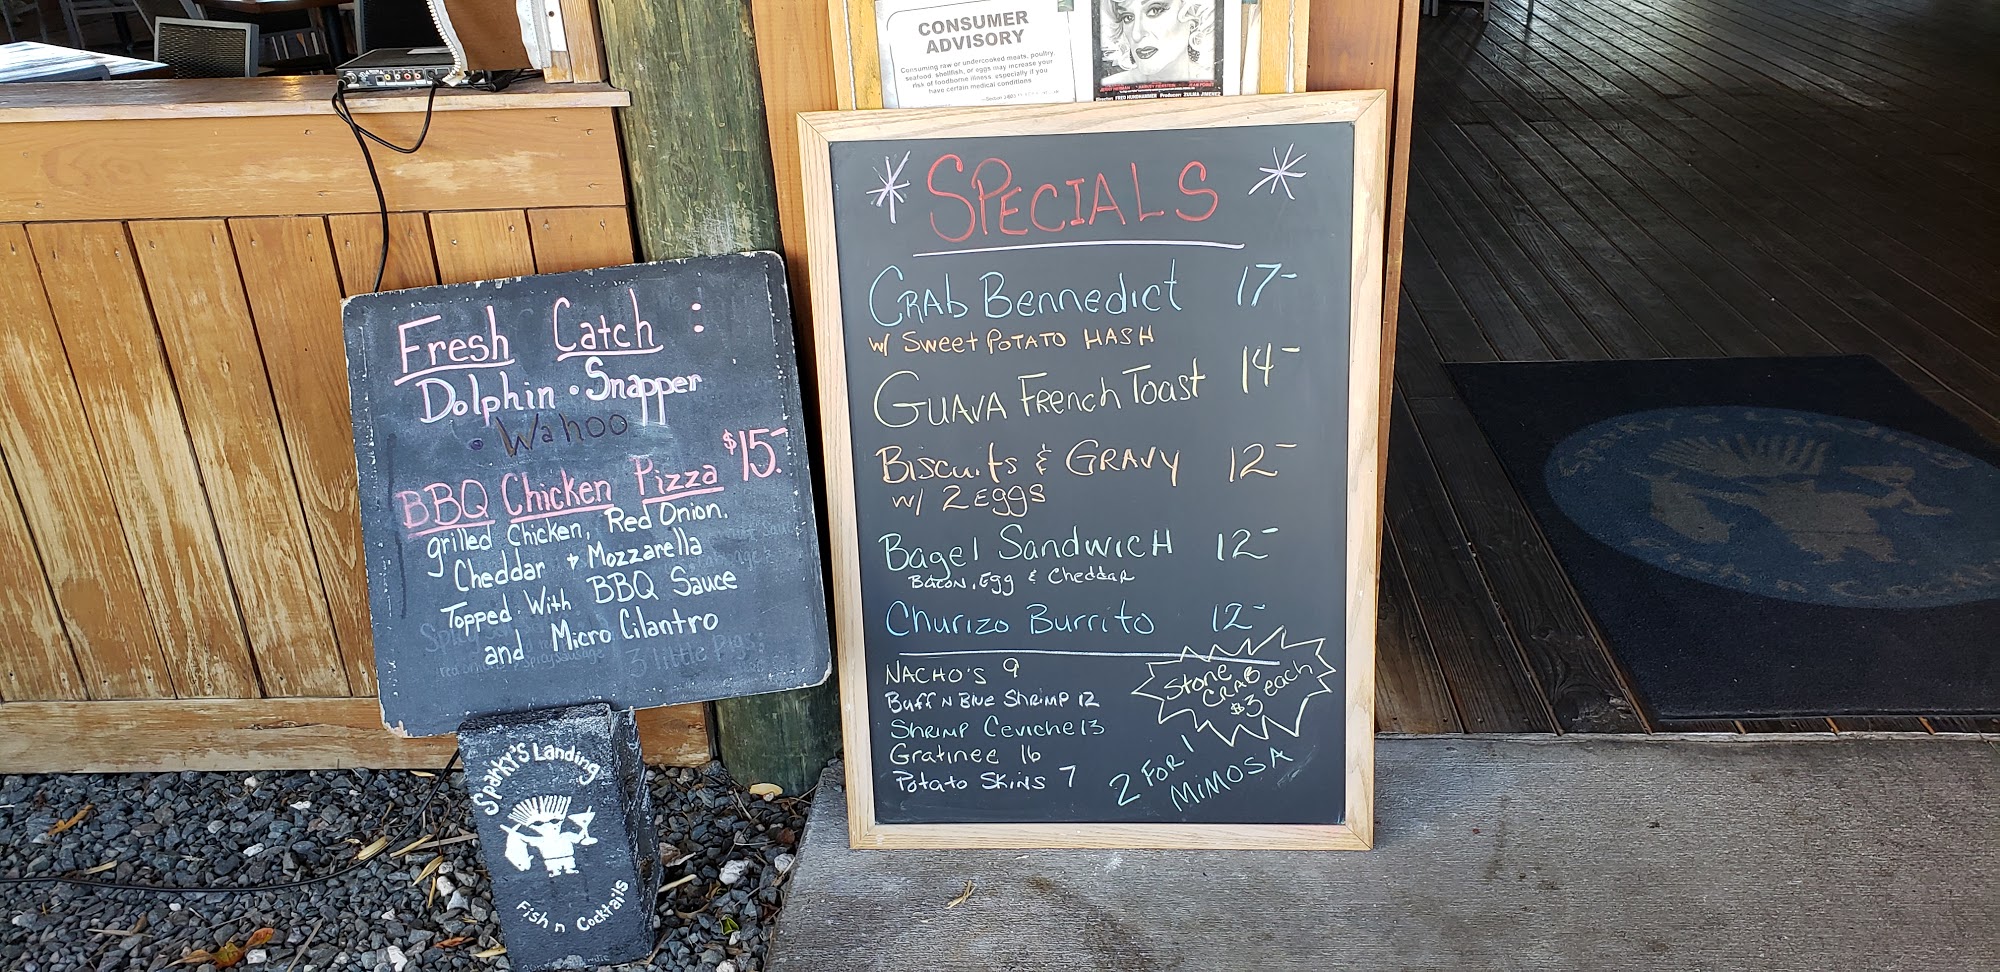 CONSUMER
ADVISORY
Consuming raw or undercooked meats, poultry,
seafood, shellfish, or eggs may increase your
risk of foodborne illness, especially if you
have certain medical conditions
Director: FRED HUNDHAMMER Producer: ZULMA JIMENEZ
SPECIALS
CRAb BENNEDICT 17-
w/ Sweet POTATO HASH
GUAVA FRENCH TOAST 14-
BISCUITS & GRAVY 12-
w/ 2 Eggs
Bagel SANDWICH 12-
BACON, Egg & Cheddar
Churizo Burrito 12-
NACHO'S 9
Buff N Blue Shrimp 12
Shrimp Ceviche 13
Gratinee 16
Potato Skins 7
Stone
CRAB
$3 each
2 FOR 1
MIMOSA
Fresh Catch :
Dolphin • Snapper
• Wahoo
BBQ Chicken Pizza $15.-
grilled Chicken, Red Onion.
Cheddar & Mozzarella
Topped With BBQ Sauce
and Micro Cilantro
3 little Pigs:
Sparky's Landing
Fish n Cocktails